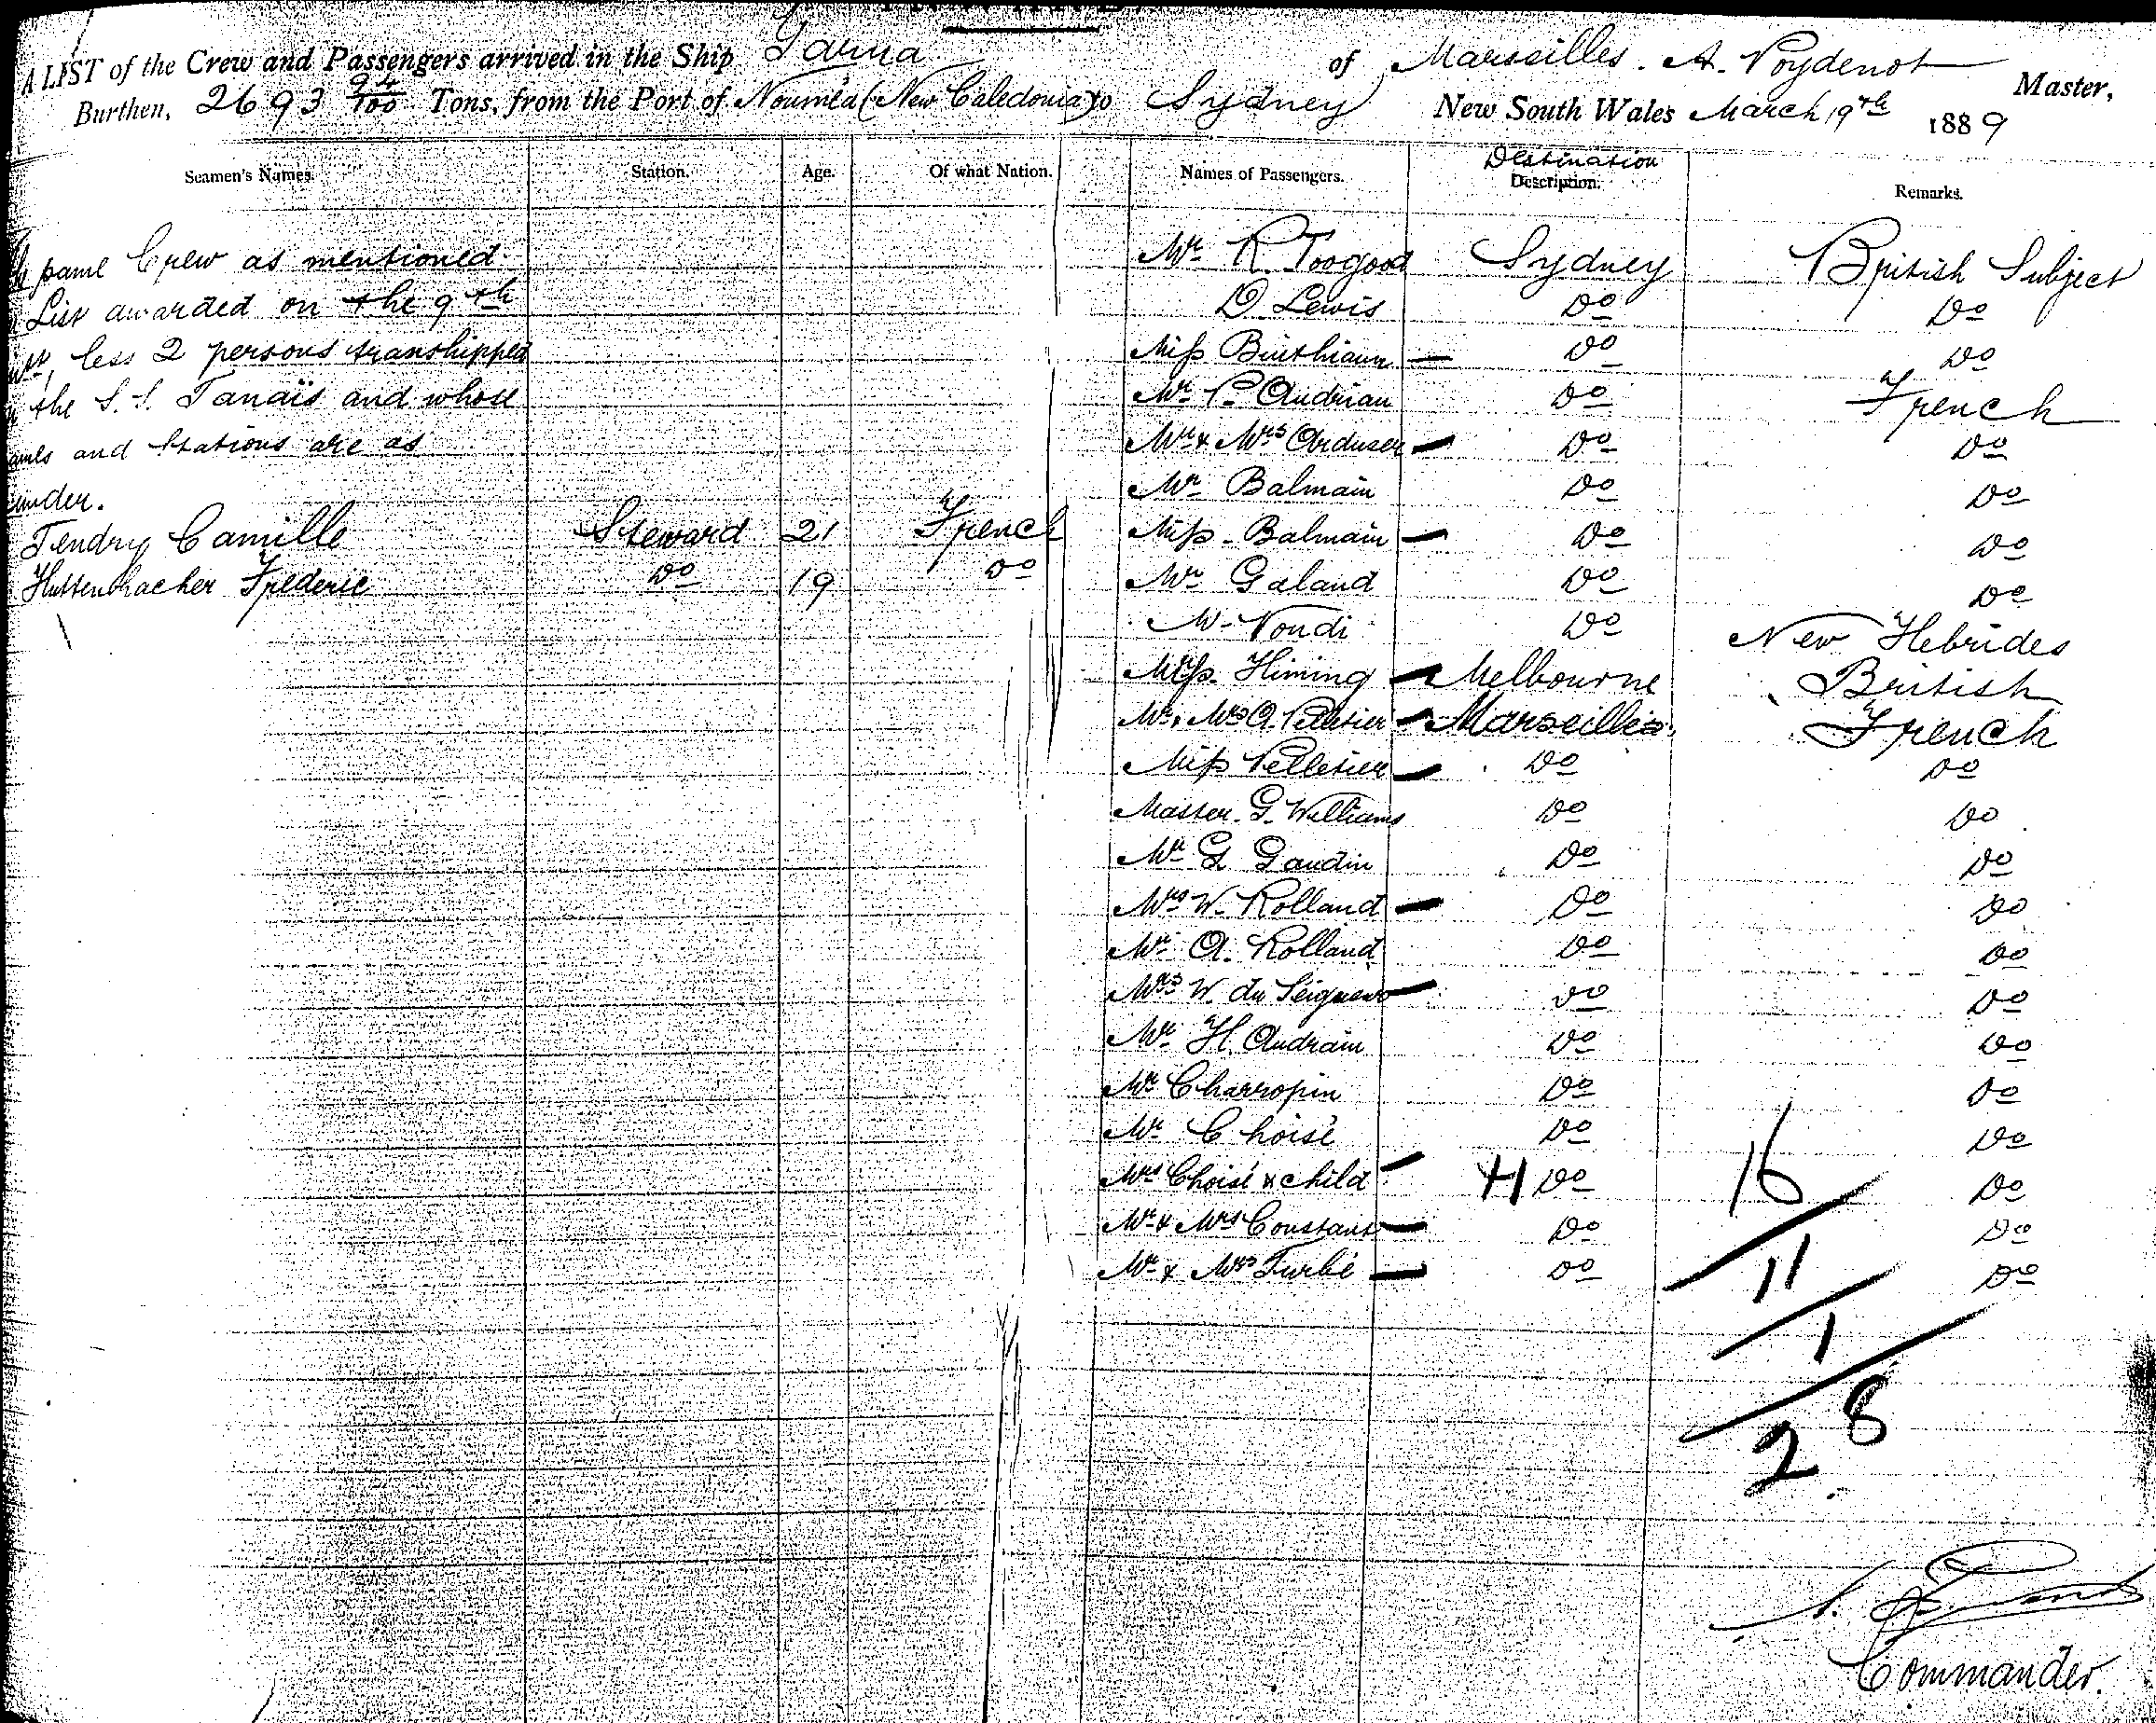 A LIST of the Crew and Passengers arrived in the Ship Yarra of Marseilles. A. Poydenot Master,
Burthen, 2693 94/100 Tons, from the Port of Nouméa (New Caledonia) to Sydney New South Wales March 19th 1889
Seamen's Names. Station. Age. Of what Nation. Names of Passengers. Destination Description. Remarks.
same Crew as mentioned
List awarded on the 9th
less 2 persons transhipped
the S.S. Tanaïs and whose
and Stations are as
under.
Tendry Camille Steward 21 French
Huttenbacher Frederic Do 19 Do
Mr R. Toogood Sydney British Subject
D. Lewis Do Do
Miss Do Do
Mr P. Audrian Do French
Mr & Mrs Do Do
Mr Balmain Do Do
Miss Balmain Do Do
Mr Galand Do Do
M. Vondi Do New Hebrides
Miss Himing Melbourne British
Mr & Mrs A. Pelletier Marseilles French
Miss Pelletier Do Do
Master G. Williams Do Do
Mr G. Gaudin Do Do
Mrs W. Rolland Do Do
Mr A. Rolland Do Do
Mrs W. du Do Do
Mr H. Audrain Do Do
Mr Charropin Do Do
Mr Choisé Do Do
Mrs Choisé & child Do Do
Mr & Mrs Constant Do Do
Mr & Mrs Turbé Do Do
16
11
1
28
Commander.